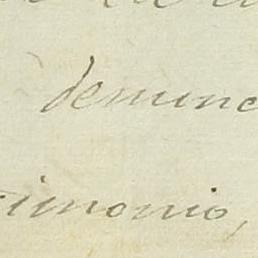 denunc
timonio,